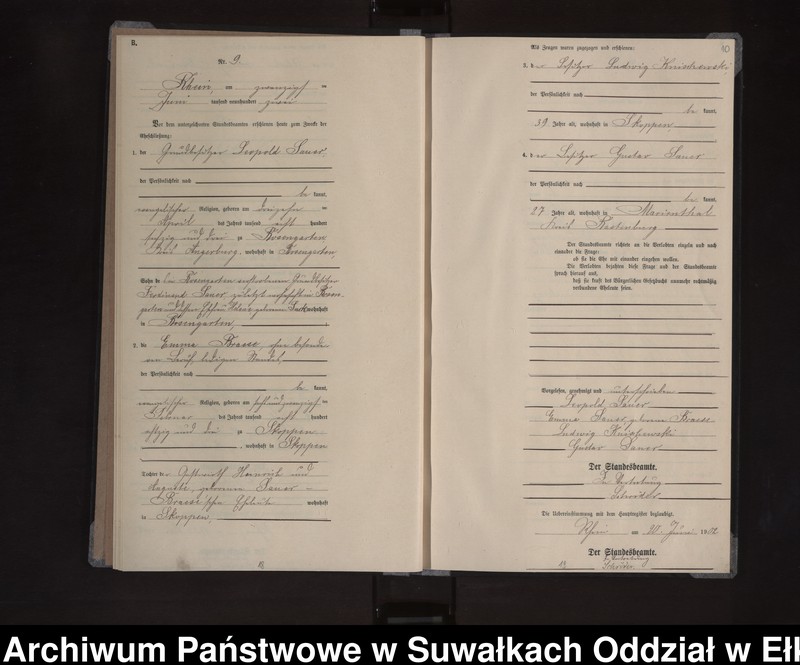 B.
Nr. 9.
Rhein, am zwanzigsten
Juni tausend neunhundert zwei
Vor dem unterzeichneten Standesbeamten erschienen heute zum Zwecke der
Eheschließung:
1. der Grundbesitzer Leopold Sauer,
der Persönlichkeit nach
be kannt,
evangelischer Religion, geboren am dreizehnten
April des Jahres tausend acht hundert
siebzig und drei zu Rosengarten
Kreis Angerburg, wohnhaft in Rosengarten
Sohn des in Rosengarten verstorbenen Grundbesitzer
Ferdinand Sauer, zuletzt wohnhaft in Rosen-
garten und dessen Ehefrau geborenen wohnhaft
in Rosengarten,
2. die Emma Braese, ohne besonde-
ren Beruf, ledigen Standes,
der Persönlichkeit nach
be kannt,
evangelischer Religion, geboren am
des Jahres tausend acht hundert
achtzig und drei zu Skoppen
, wohnhaft in Skoppen
Tochter der Gastwirth Heinrich und
Auguste, geborenen Sauer -
Braese'schen Eheleute wohnhaft
in Skoppen,
40
Als Zeugen waren zugezogen und erschienen:
3. der Besitzer Ludwig
der Persönlichkeit nach
be kannt,
39 Jahre alt, wohnhaft in Skoppen,
4. der Besitzer Gustav Sauer
der Persönlichkeit nach
be kannt,
27 Jahre alt, wohnhaft in Marienthal
Kreis Rastenburg
Der Standesbeamte richtete an die Verlobten einzeln und nach
einander die Frage:
ob sie die Ehe mit einander eingehen wollen.
Die Verlobten bejahten diese Frage und der Standesbeamte
sprach hierauf aus,
daß sie kraft des Bürgerlichen Gesetzbuchs nunmehr rechtmäßig
verbundene Eheleute seien.
Vorgelesen, genehmigt und unterschrieben
Leopold Sauer
Emma Sauer geborene Braese
Ludwig
Gustav Sauer
Der Standesbeamte.
In Vertretung
Die Uebereinstimmung mit dem Hauptregister beglaubigt.
Rhein am 20. Juni 1902
Der Standesbeamte.
In Vertretung
Archiwum Państwowe w Suwałkach Oddział w Ełk